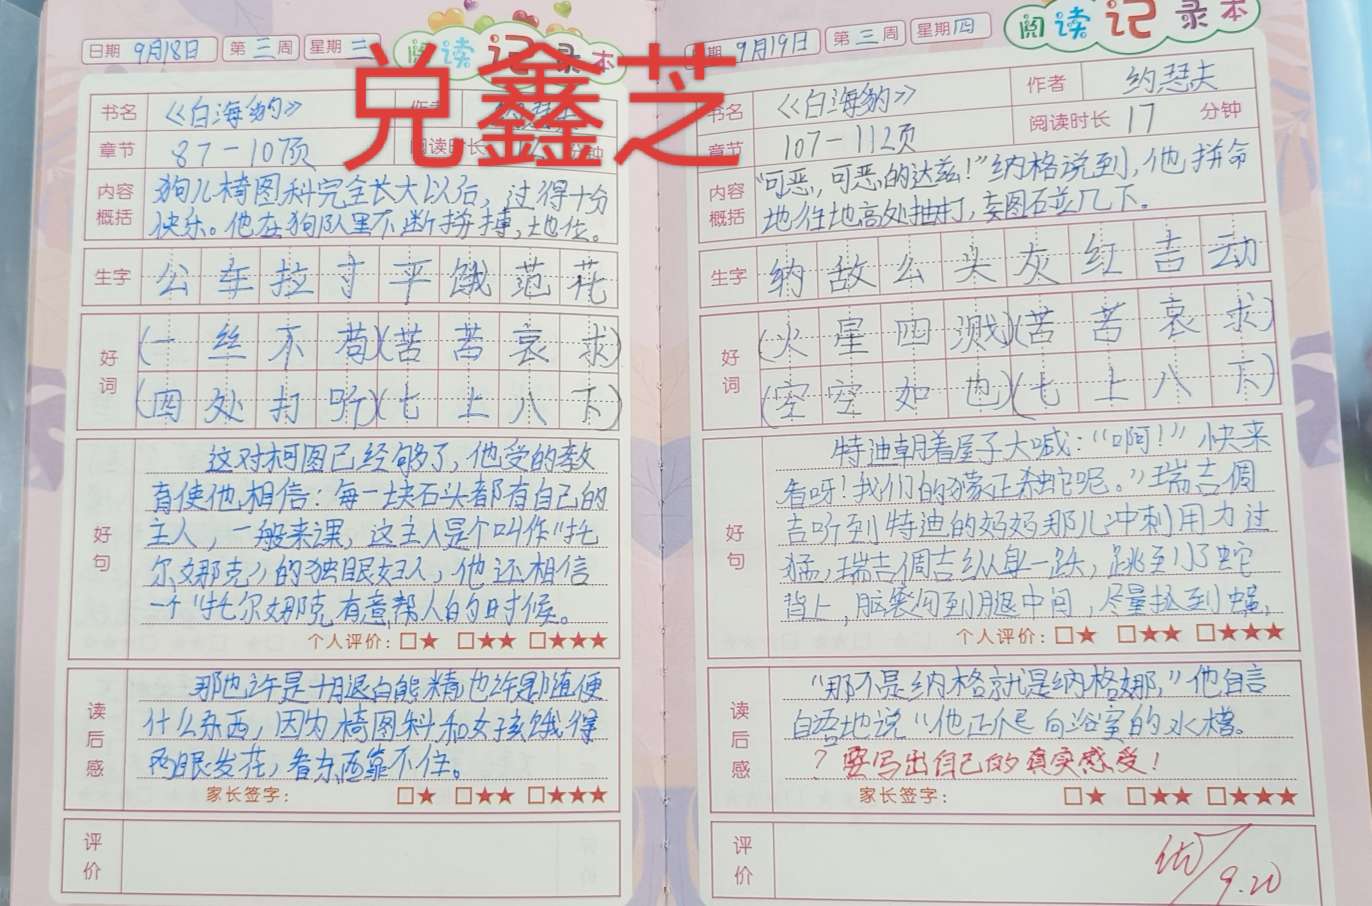 日期 9月18日 第三周 星期三 阅读记录本
兑鑫芝
书名 《白海豹》 作者
章节 87-107页 阅读时长 分钟
内容概括 狗儿椅图科完全长大以后，过得十分
快乐。他在狗队里不断拼搏，地位。
生字 公 车 拉 寸 平 饿 范 花
好词 (一丝不苟)(苦苦哀求)
(四处打听)(七上八下)
好句 这对柯图已经够了，他受的教
育使他相信：每一块石头都有自己的
主人，一般来课，这主人是个叫作"托
尔娜克"的独眼妇人，他还相信
一个"托尔娜克有意帮人的时候。
个人评价：□★ □★★ □★★★
读后感 那也许是十月退白熊精也许是随便
什么东西，因为椅图科和女孩饿得
两眼发花，看东西靠不住。
家长签字： □★ □★★ □★★★
评价
日期 9月19日 第三周 星期四 阅读记录本
书名 《白海豹》 作者 约瑟夫
章节 107-112页 阅读时长 17 分钟
内容概括 "可恶，可恶的达兹！"纳格说到，他拼命
地往地高处抽打，妄图石并几下。
生字 纳 敌 公 头 灰 红 吉 动
好词 (火星四溅)(苦苦哀求)
(空空如也)(七上八下)
好句 特迪朝着屋子大喊："啊！"快来
看呀！我们的獴正杀蛇呢。"瑞吉倜
吉听到特迪的妈妈那儿冲刺用力过
猛，瑞吉倜吉纵身一跃，跳到了蛇
背上，脑袋勾到腿中间，尽量
个人评价：□★ □★★ □★★★
读后感 "那不是纳格就是纳格娜，"他自言
自语地说"他正爬向浴室的水槽。
？要写出自己的真实感受！
家长签字： □★ □★★ □★★★
评价 优
9.20